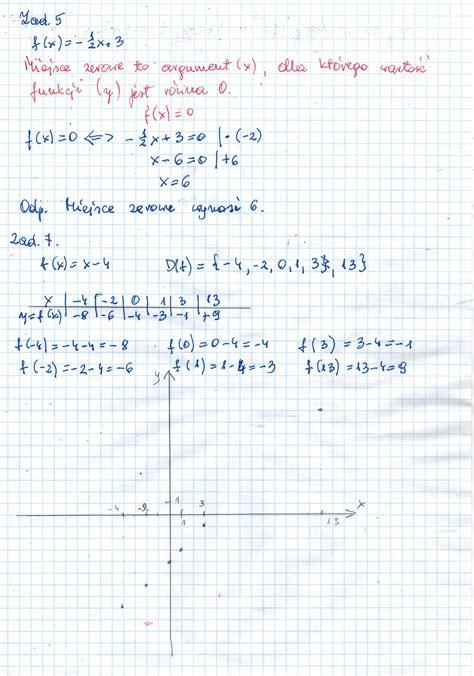 Zad. 5
f(x) = -1/2x+3
Miejsce zerowe to argument (x), dla którego wartość
funkcji (y) jest równa 0.
f(x) = 0
f(x)=0 <=> -1/2x+3=0 |·(-2)
x-6=0 |+6
x=6
Odp. Miejsce zerowe wynosi 6.
Zad. 7.
f(x) = x-4 D(f) = {-4, -2, 0, 1, 3, 13}
x | -4 | -2 | 0 | 1 | 3 | 13
y=f(x) | -8 | -6 | -4 | -3 | -1 | +9
f(-4)=-4-4=-8 f(0)=0-4=-4 f(3)=3-4=-1
f(-2)=-2-4=-6 f(1)=1-4=-3 f(13)=13-4=9
y
-4 -2 1 3 x
1 13